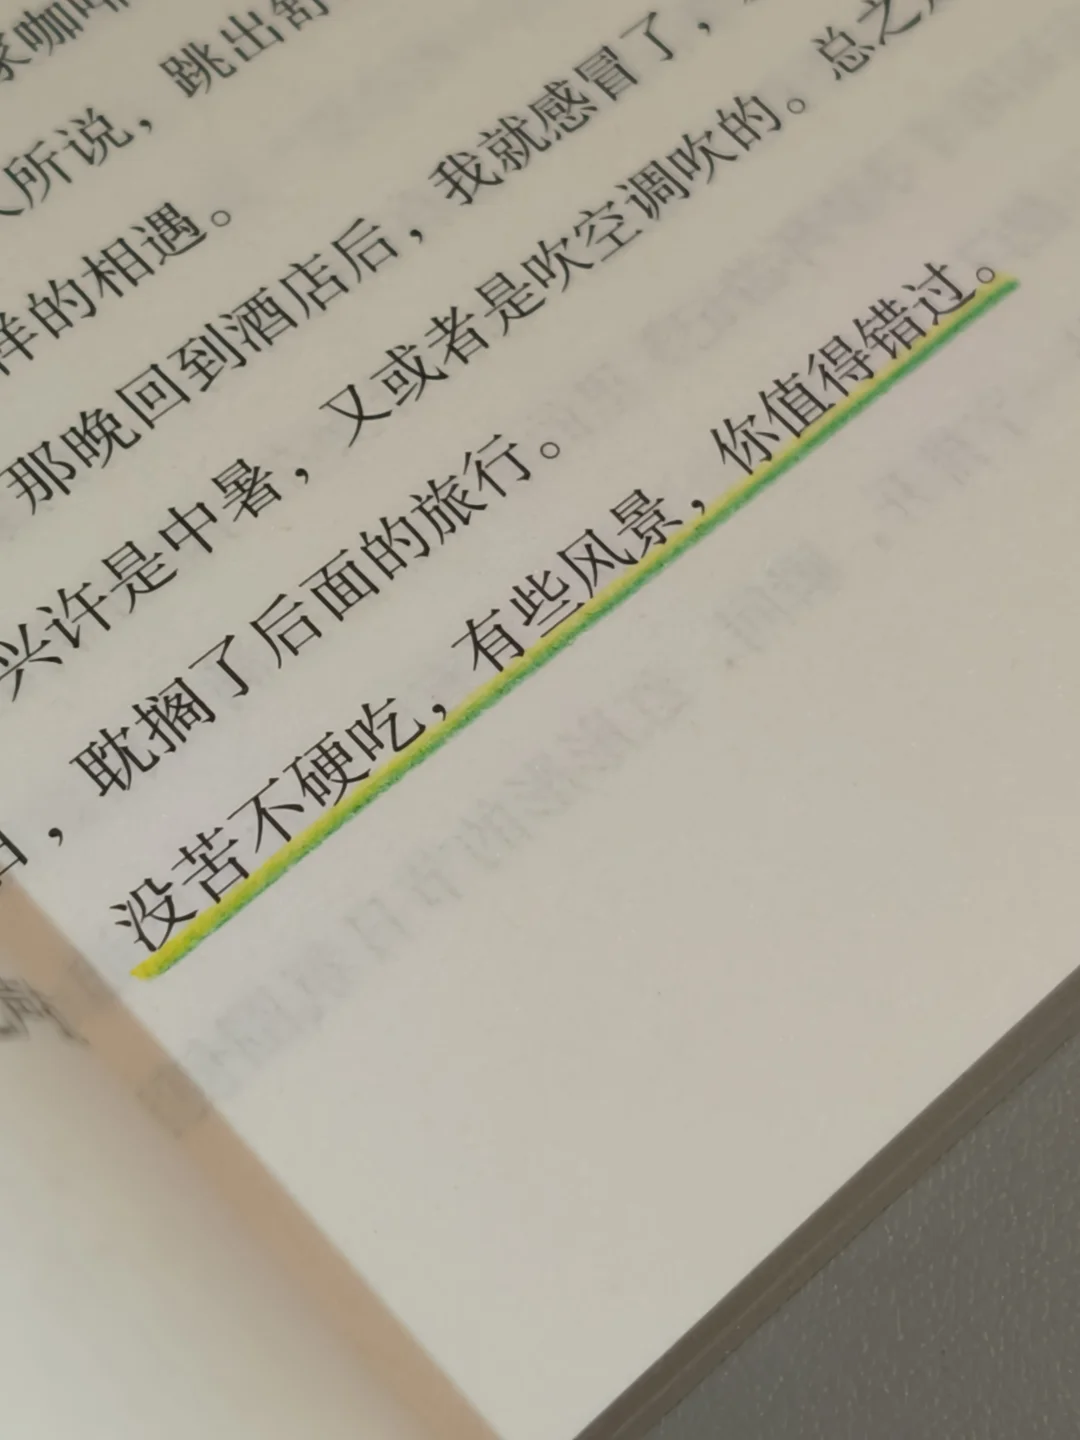 家咖啡
人所说，跳出舒
样的相遇。
那晚回到酒店后，我就感冒了，
兴许是中暑，又或者是吹空调吹的。总之
，耽搁了后面的旅行。
没苦不硬吃，有些风景，你值得错过。